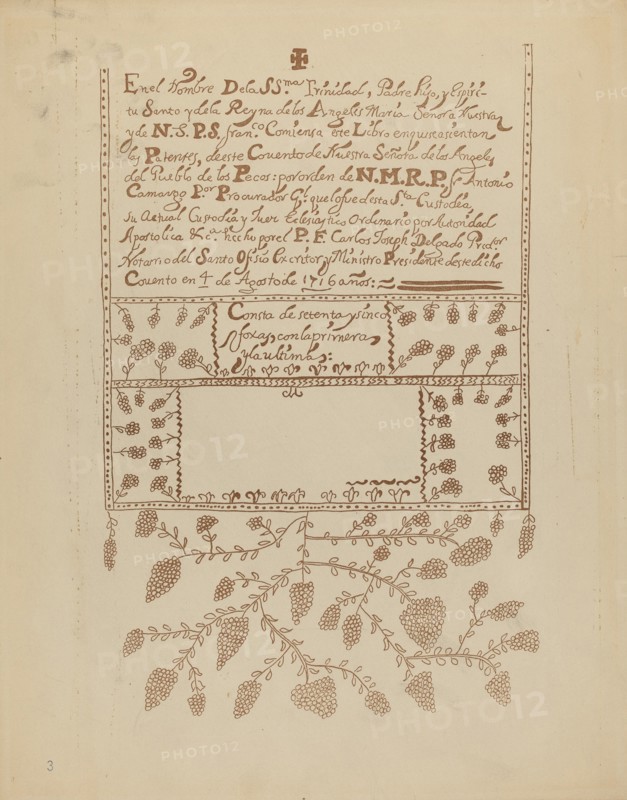 En el Nombre De la SS.ma Trinidad, Padre hijo, y Espiri-
tu Santo y de la Reyna de los Angeles Maria Señora Nuestra
y de N.S.P.S. fran.co Comiensa este Libro en que se asientan
las Patentes, de este Couento de Nuestra Señora de los Angeles
del Pueblo de los Pecos: por orden de N.M.R.P. fr. Antonio
Camargo P.or Procurador G.l que lo fue de esta S.ta Custodia,
su Actual Custodio y Juez Eclesiastico Ordinario por Autoridad
Apostolica &c.a hecho por el P. F. Carlos Joseph Delgado Pred.or
Notario del Santo Ofisio Escritor y Ministro Presidente deste dicho
Couento en 4 de Agosto de 1716 años:
Consta de setenta y sinco
foxas, con la primera
y la ultima:
3
PHOTO12